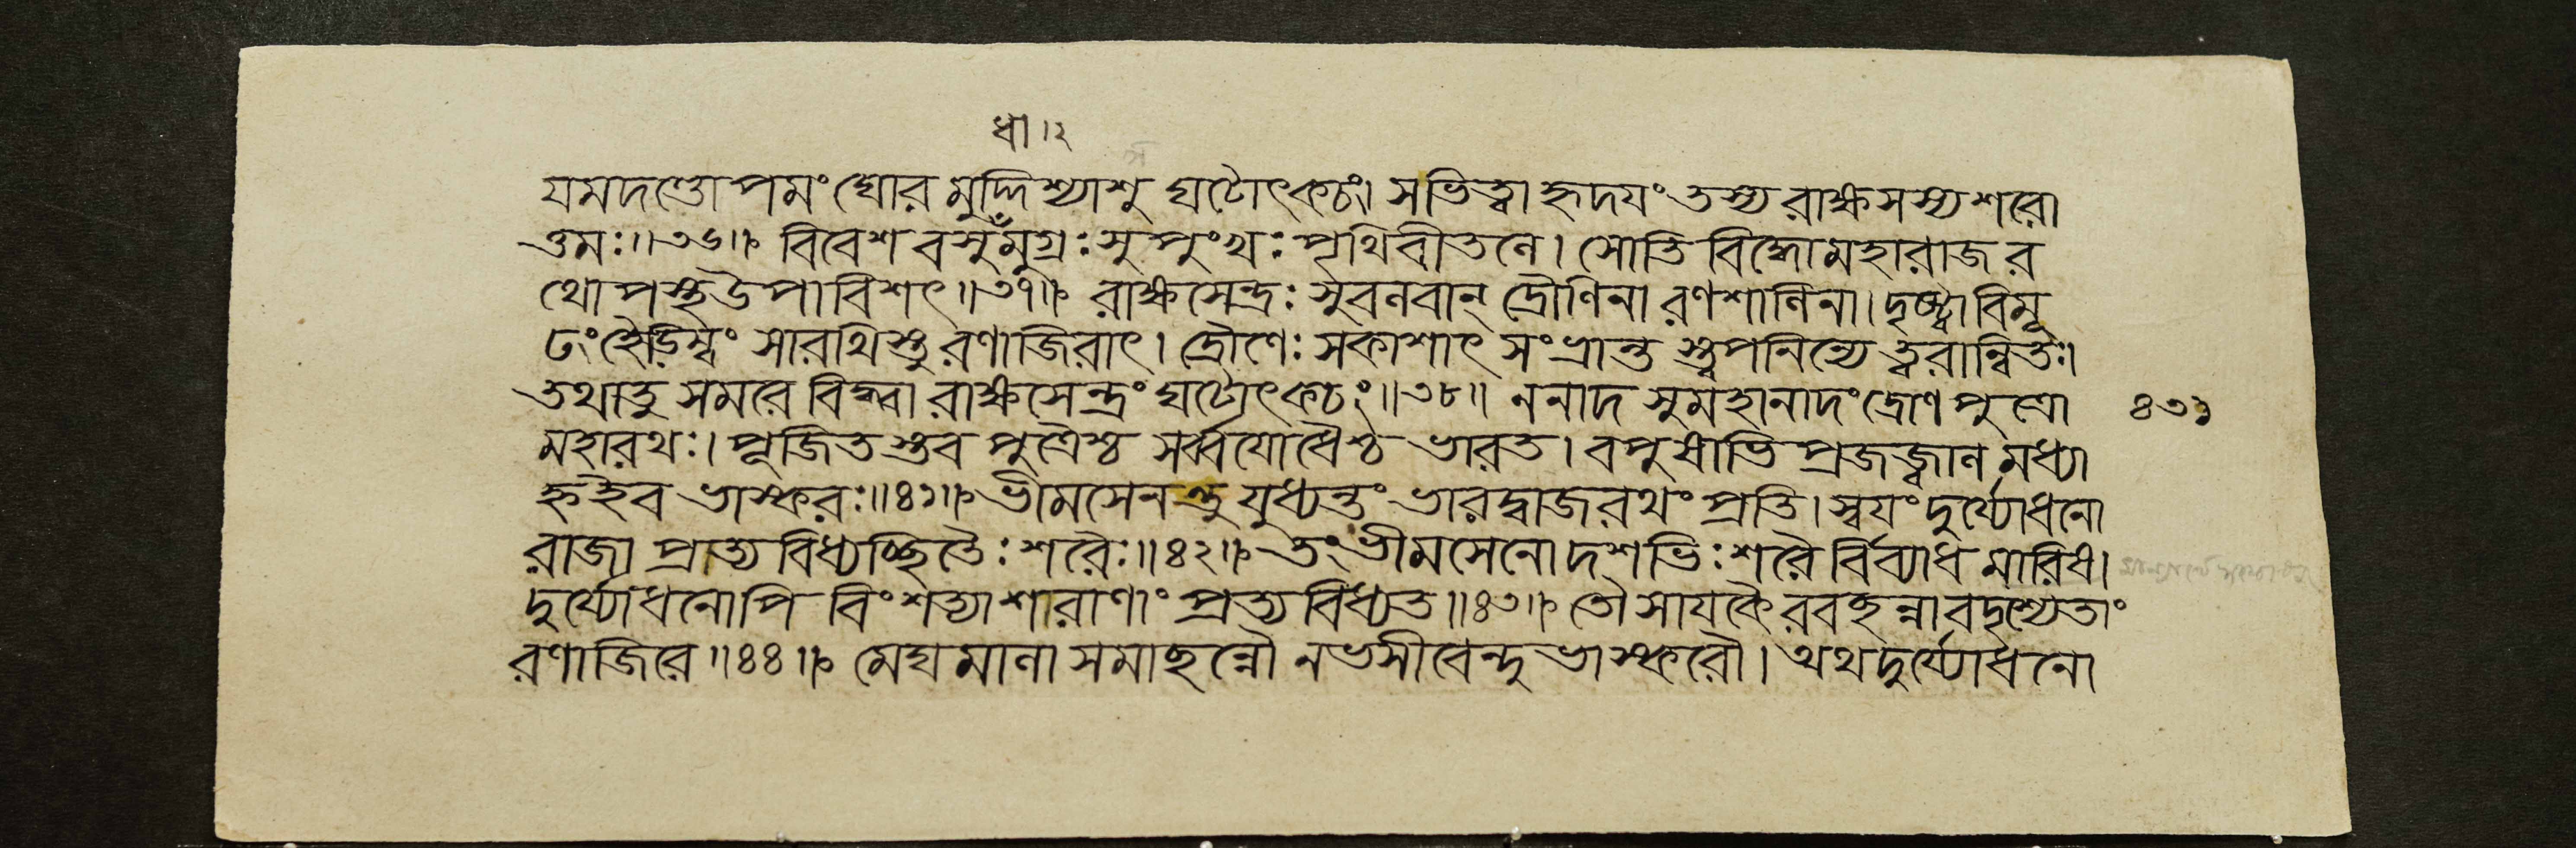 ধা ।২
যমদণ্ডোপমং ঘোরমুদ্দিশ্যাশু ঘটোৎকচং। স ভিত্বা হৃদযং তস্য রাক্ষসস্য শরো
ত্তমঃ॥৩৬॥ বিবেশ বসুমুগ্রঃ সুপুংখঃ পৃথিবীতলে। সোতিবিদ্ধো মহারাজ র
থোপস্থ উপাবিশৎ॥৩৭॥ রাক্ষসেন্দ্রঃ সুবলবান্ দ্রৌণিনা রণশালিনা। দৃষ্ট্বা বিমূ
ঢং হৈডিম্বং সারথিস্তু রণাজিরাৎ। দ্রৌণেঃ সকাশাৎ সংভ্রান্তস্ত্বপনিন্যে ত্বরান্বিতঃ।
তথা তু সমরে বিদ্ধ্বা রাক্ষসেন্দ্রং ঘটোৎকচং॥৩৮॥ ননাদ সুমহানাদং দ্রোণপুত্রো
৪৩১
মহারথঃ। পূজিতস্তব পুত্রৈশ্চ সর্ব্বযোধৈশ্চ ভারত। বপুষাভিপ্রজজ্বাল মধ্যা
হ্ন ইব ভাস্করঃ॥৪১॥ ভীমসেনন্তু যুধ্যন্তং ভারদ্বাজরথং প্রতি। স্বযং দুর্য্যোধনো
রাজা প্রাত্যবিধ্যচ্ছিতৈঃ শরৈঃ॥৪২॥ তং ভীমসেনো দশভিঃ শরৈর্বিব্যাধ মারিষ।
দুর্য্যোধনোপি বিংশত্যা শারাণাং প্রত্যবিধ্যত॥৪৩॥ তৌ সাযকৈরবছন্নাবদৃশ্যেতাং
রণাজিরে॥৪৪॥ মেঘমালাসমাছন্নৌ নভসীবেন্দুভাস্করৌ। অথ দুর্য্যোধনো